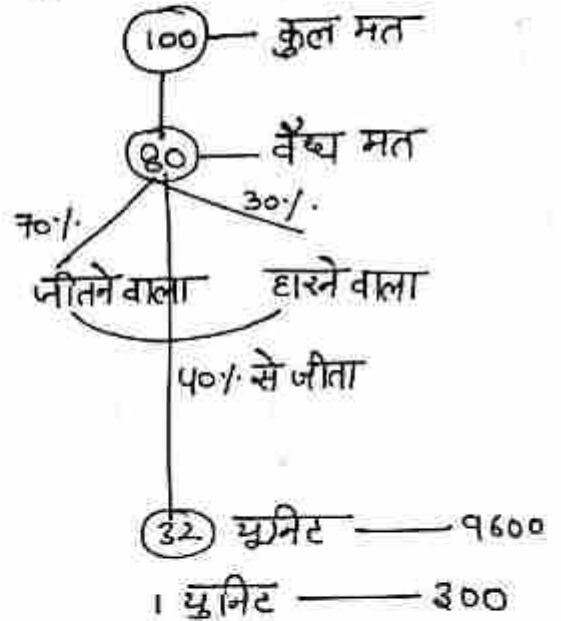 100 कुल मत
80 वैध मत
70% 30%
जीतने वाला हारने वाला
40% से जीता
32 यूनिट 9600
1 युनिट 300